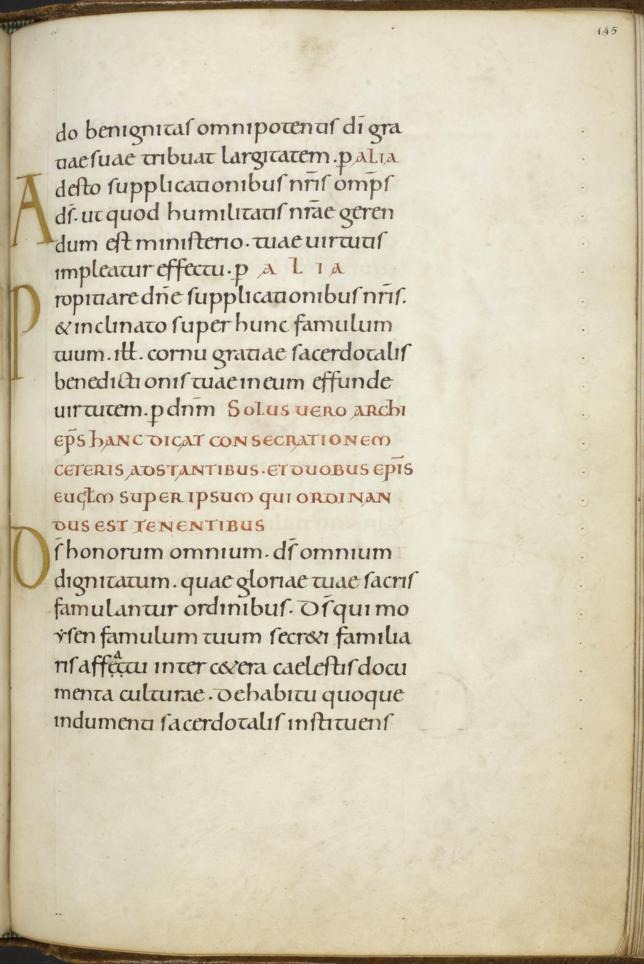 145
do benignitas omnipotentis dī gra
tiae suae tribuat largitatem. p̄ ALIA
Adesto supplicationibus nr̄is omp̄s
ds̄. ut quod humilitatis nr̄ae geren
dum est ministerio. tuae uirtutis
impleatur effectu. p̄ A L I A
Propitiare dn̄e supplicationibus nr̄is.
& inclinato super hunc famulum
tuum. ill. cornu gratiae sacerdotalis
benedictionis tuae in eum effunde
uirtutem. p̄ dn̄m SOLUS UERO ARCHI
EP̄S HANC DICAT CONSECRATIONEM
CETERIS ADSTANTIBUS. ET DUOBUS EP̄IS
SUPER IPSUM QUI ORDINAN
DUS EST TENENTIBUS
Ds̄ honorum omnium. ds̄ omnium
dignitatum. quae gloriae tuae sacris
famulantur ordinibus. Ds̄ qui mo
ysen famulum tuum secr&i familia
ris affatu inter c&era caelestis docu
menta culturae. De habitu quoque
indumenti sacerdotalis instituens